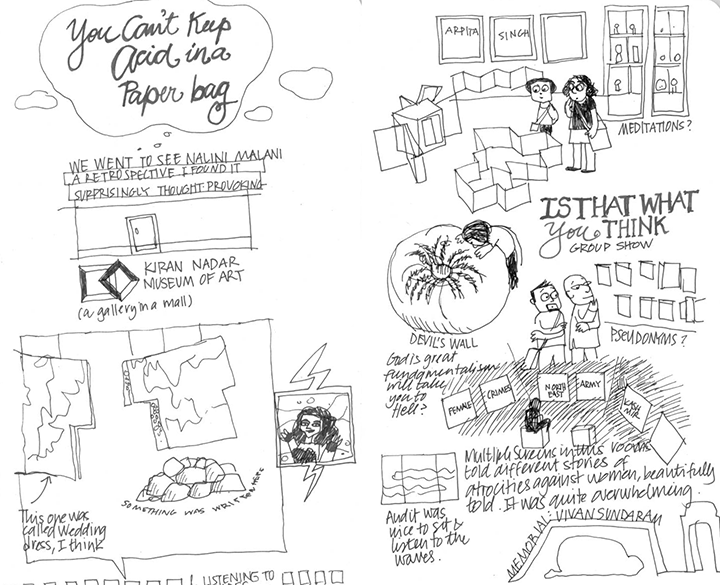 You Can't Keep
Acid in a
Paper bag
WE WENT TO SEE NALINI MALANI
A RETROSPECTIVE I FOUND IT
SURPRISINGLY THOUGHT-PROVOKING
KIRAN NADAR
MUSEUM OF ART
(a gallery in a mall)
SOMETHING WAS WRITTEN HERE
This one was
called wedding
dress, I think
LISTENING TO
ARPITA
SINGH
MEDITATIONS?
IS THAT WHAT
You THINK
GROUP SHOW
DEVIL'S WALL
God is great
fundamentalism
will take
you to
Hell?
PSEUDONYMS?
FEMALE
CRIMES
NORTH
EAST
ARMY
KASH
MIR
Multiple screens in this rooms
told different stories of
atrocities against woman, beautifully
told. It was quite overwhelming.
Audit was
nice to sit &
listen to the
waves.
MEMORIAL: VIVAN SUNDARAM